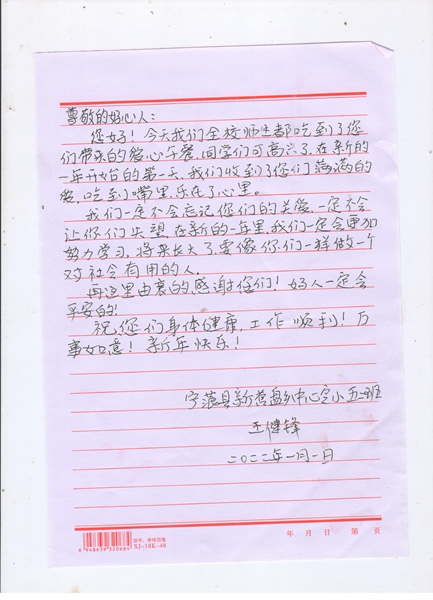 尊敬的好心人：
您好！今天我们全校师生都吃到了您
们带来的爱心午餐，同学们可高兴了，在新的
一年开始的第一天，我们收到了你们满满的
爱，吃到嘴里，乐在了心里。
我们一定不会忘记您们的关爱，一定不会
让你们失望，在新的一年里，我们一定会更加
努力学习，将来长大了，要像你们一样做一个
对社会有用的人。
再这里由衷的感谢您们！好人一定会
平安的！
祝您们身体健康，工作顺利！万
事如意！新年快乐！
宁蒗县新营盘乡中心完小五班
王健锋
二〇二二年一月一日
年 月 日 第 页
6 948639 320684
XJ-16K-40